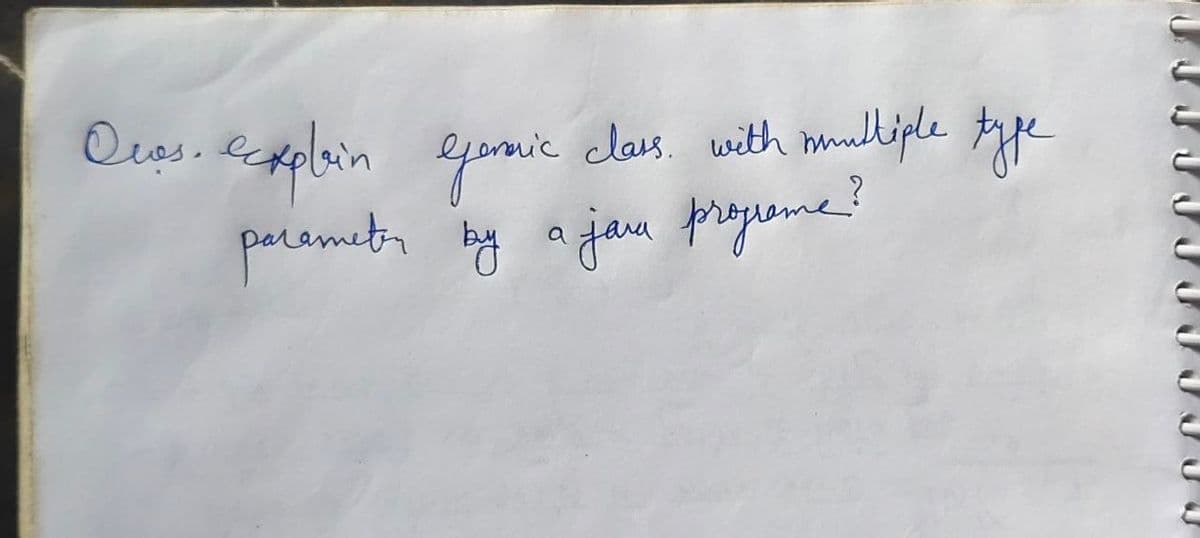 Ques. explain generic class. with multiple type
parameter by a java programe?